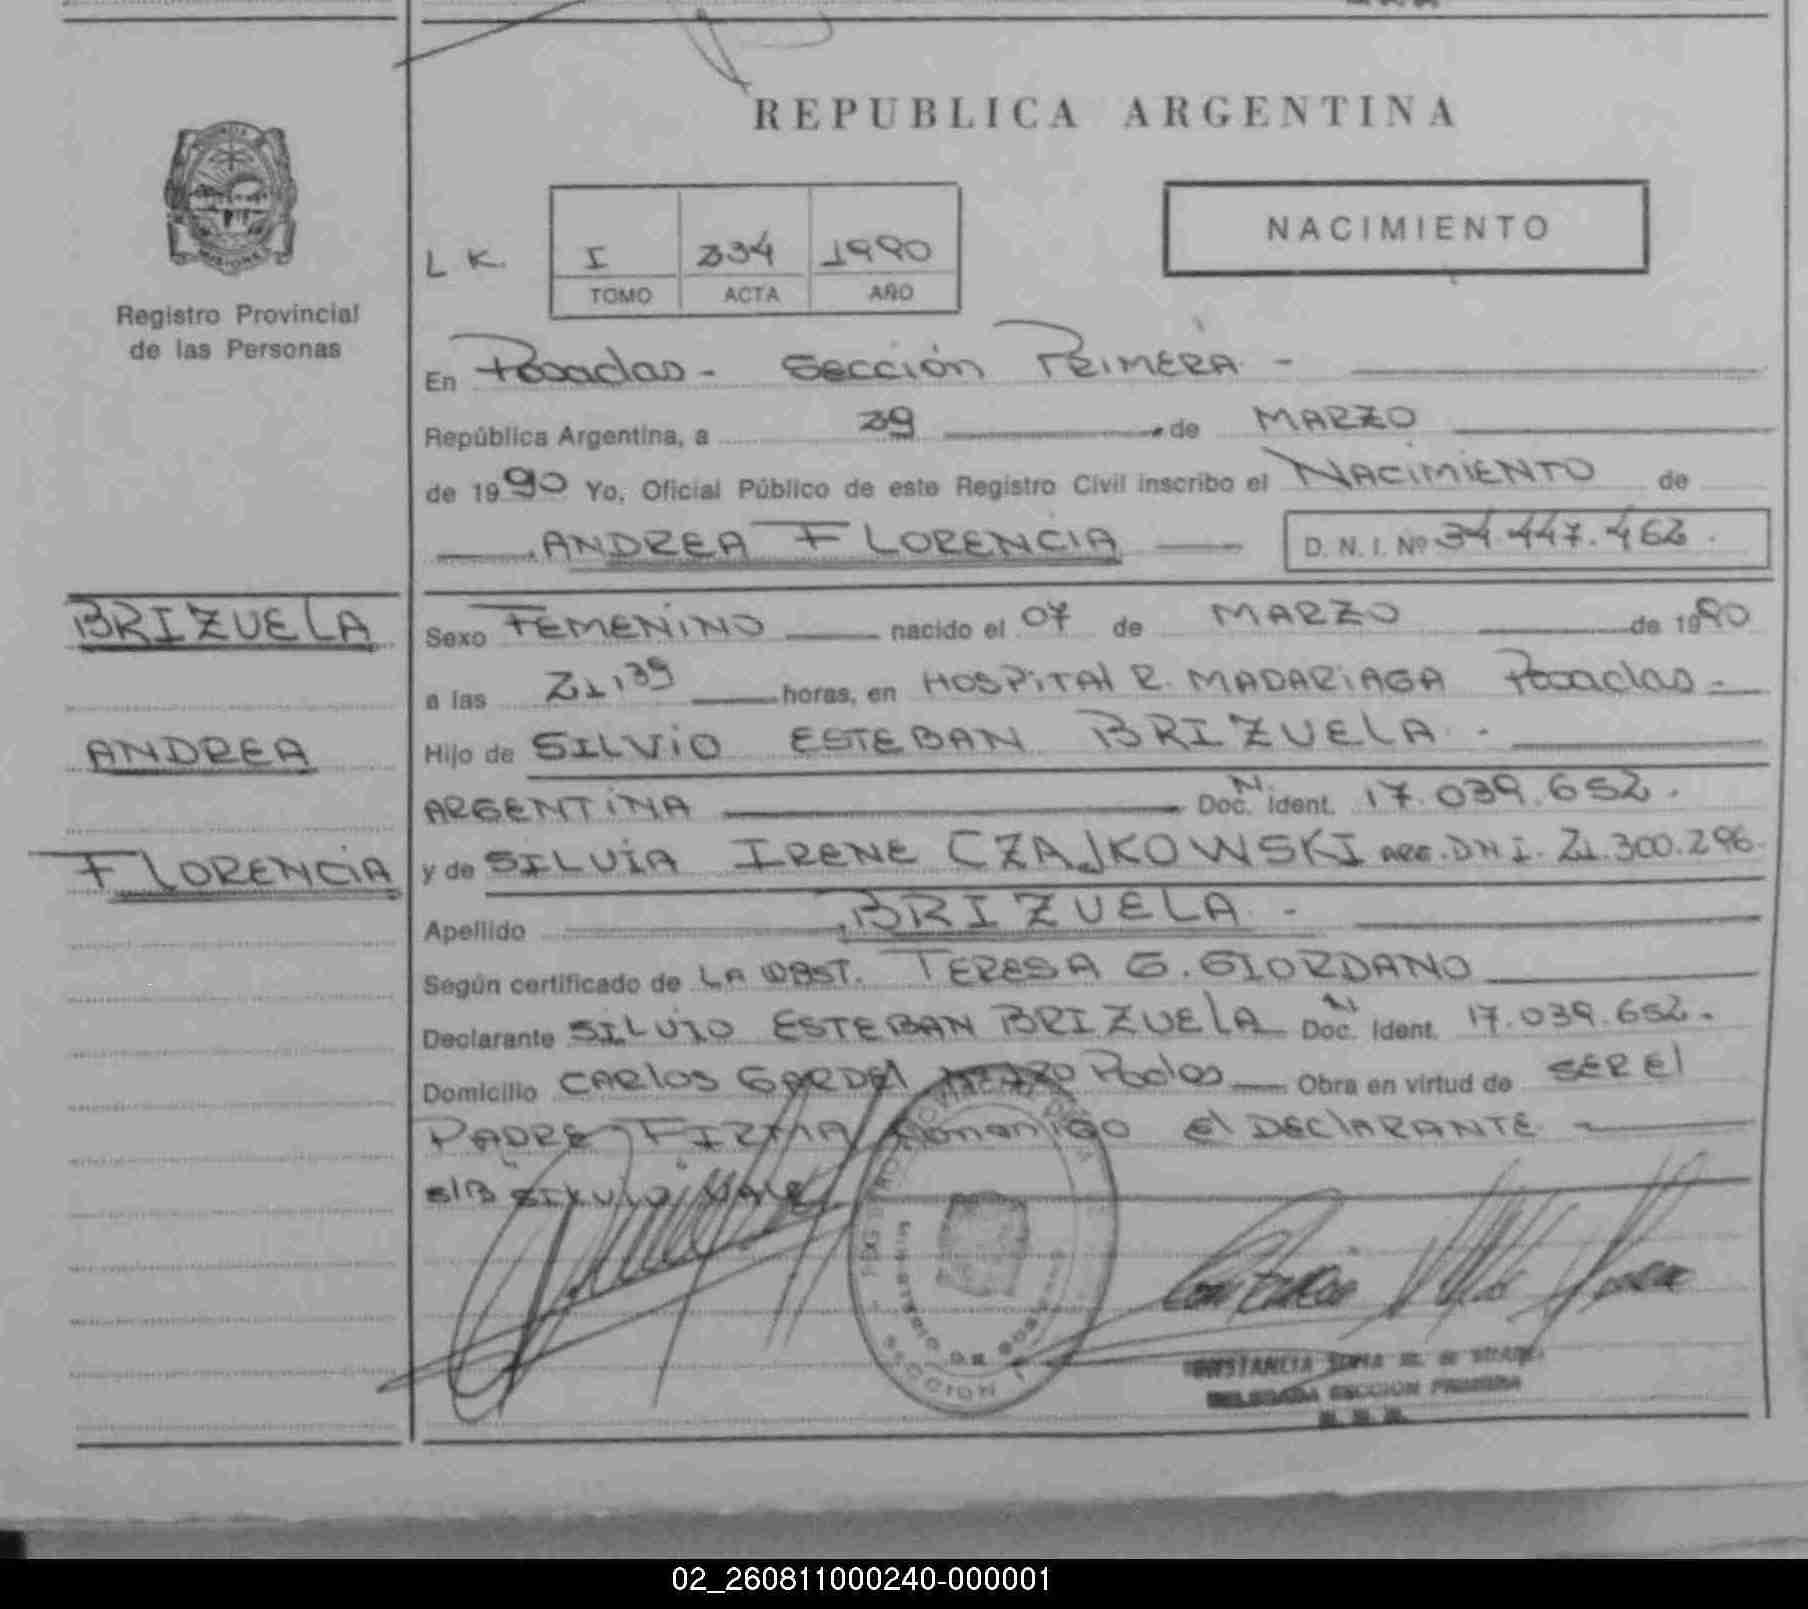 REPUBLICA ARGENTINA
NACIMIENTO
L K. I 334 1990
TOMO ACTA AÑO
Registro Provincial
de las Personas
En Posadas - Sección PRIMERA -
República Argentina, a 29 de MARZO
de 1990 Yo, Oficial Público de este Registro Civil inscribo el NACIMIENTO de
ANDREA FLORENCIA D. N. I. Nº 34.447.462.
BRIZUELA
ANDREA
FLORENCIA
Sexo FEMENINO nacido el 07 de MARZO de 1990
a las 21,39 horas, en HOSPITAl R. MADARIAGA Posadas -
Hijo de SILVIO ESTEBAN BRIZUELA -
ARGENTINA Doc. N Ident. 17.039.652.
y de SILVIA IRENE CZAJKOWSKI ARG. DNI. 21.300.296.
Apellido BRIZUELA -
Según certificado de LA OBST. TERESA G. GIORDANO
Declarante SILVIO ESTEBAN BRIZUELA Doc. N Ident. 17.039.652.
Domicilio CARlOS GARDEl Obra en virtud de SER El
PADRE FIRMA El DEClARANTE
S/B SILVIO VALE
SECCION 1
CONSTANCIA SOFIA
DELEGADA SECCION PRIMERA
02_260811000240-000001